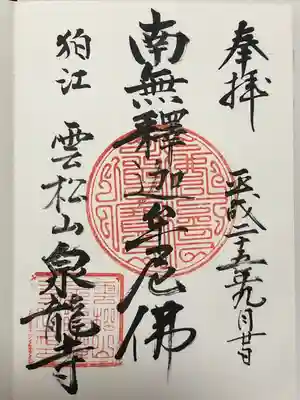 奉拝
平成二十五年九月廿日
南無釋迦牟尼佛
狛江
雲松山
泉龍寺